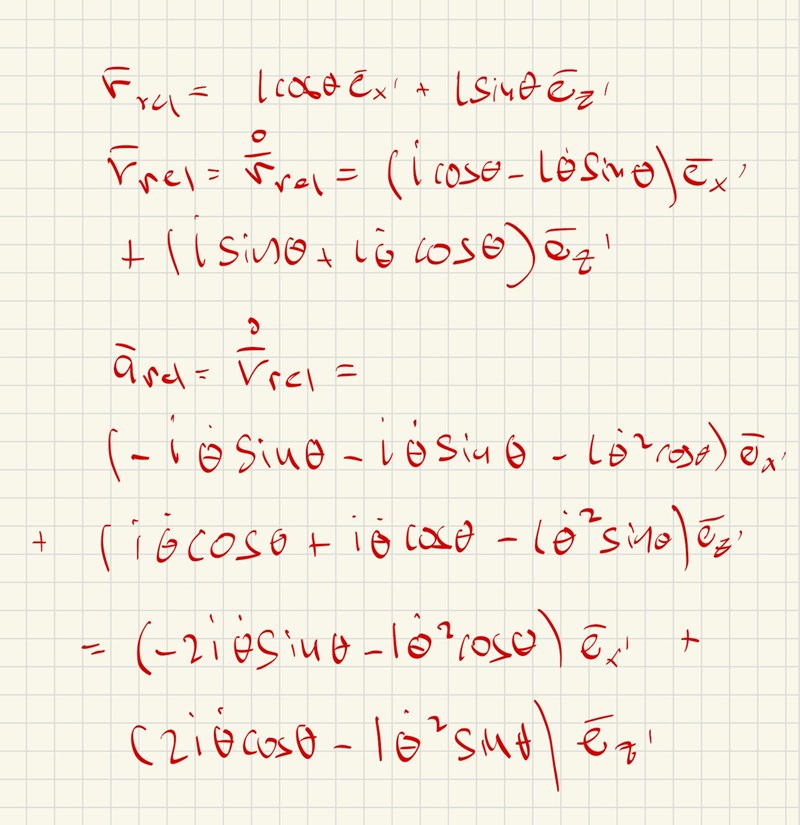 r̄_rel = l cosθ ē_x' + l sinθ ē_z'
v̄_rel = r̄̊_rel = (l̇ cosθ - lθ̇ sinθ) ē_x'
+ (l̇ sinθ + lθ̇ cosθ) ē_z'
ā_rel = v̄̊_rel =
(-l̇ θ̇ sinθ - l̇ θ̇ sinθ - lθ̇² cosθ) ē_x'
+ (l̇ θ̇ cosθ + l̇ θ̇ cosθ - lθ̇² sinθ) ē_z'
= (-2l̇ θ̇ sinθ - lθ̇² cosθ) ē_x' +
(2l̇ θ̇ cosθ - lθ̇² sinθ) ē_z'